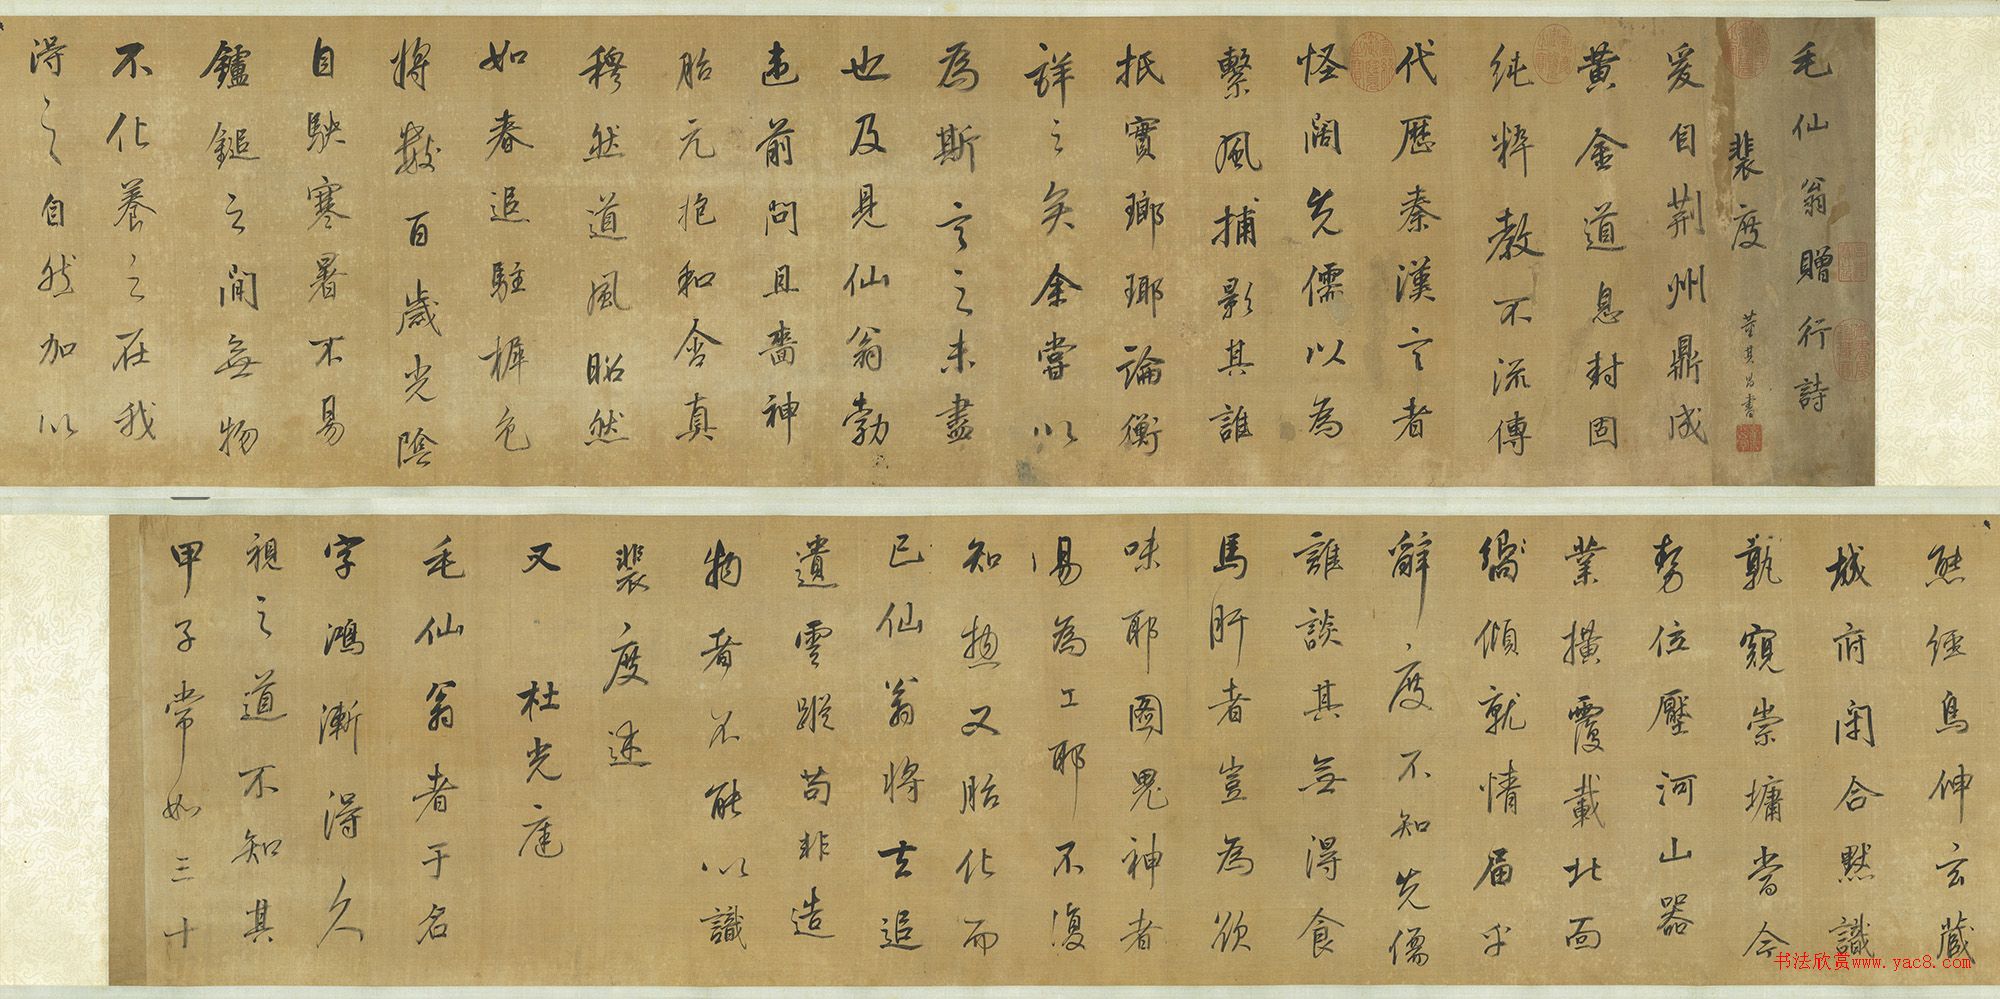 毛仙翁贈行詩
裴度 董其昌書
爰自荆州鼎成
黄金道息封固
純粹教不流傳
代歷秦漢言者
怪闊先儒以為
繫風捕影其誰
抵實瑯瑘論衡
詳之矣余嘗以
為斯言之未盡
也及見仙翁勃
違前問且嗇神
胎元抱和含真
穆然道風昭然
如春追駐樨色
將數百歲光陰
自駃寒暑不易
鑪鎚之間無物
不化養之在我
得之自然加以
熊經鳥伸玄藏
城府閉合黙識
窺崇墉嘗今
勢位壓河山器
業横覆載北面
傾就情届乎
辭度不知先儒
誰談其無得食
馬肝者豈為欲
味耶圖鬼神者
易為工耶不復
知愬又胎化而
已仙翁將去追
遺雲蹤苟非造
物者不能以識
裴度述
又 杜光庭
毛仙翁者于名
字鴻漸得久
視之道不知其
甲子常如三十
书法欣赏www.yac8.com